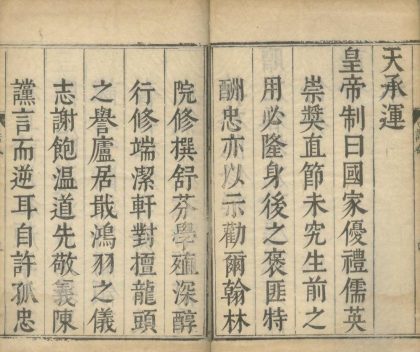 天承運
皇帝制曰國家優禮儒英
崇奬直節未究生前之
用必隆身後之褒匪特
酬忠亦以示勸爾翰林
院修撰舒芬學蘊深醇
行修端潔軒對擅龍頭
之譽廬居戢鴻羽之儀
志謝飽温道先敬義陳
讜言而逆耳自許孤忠